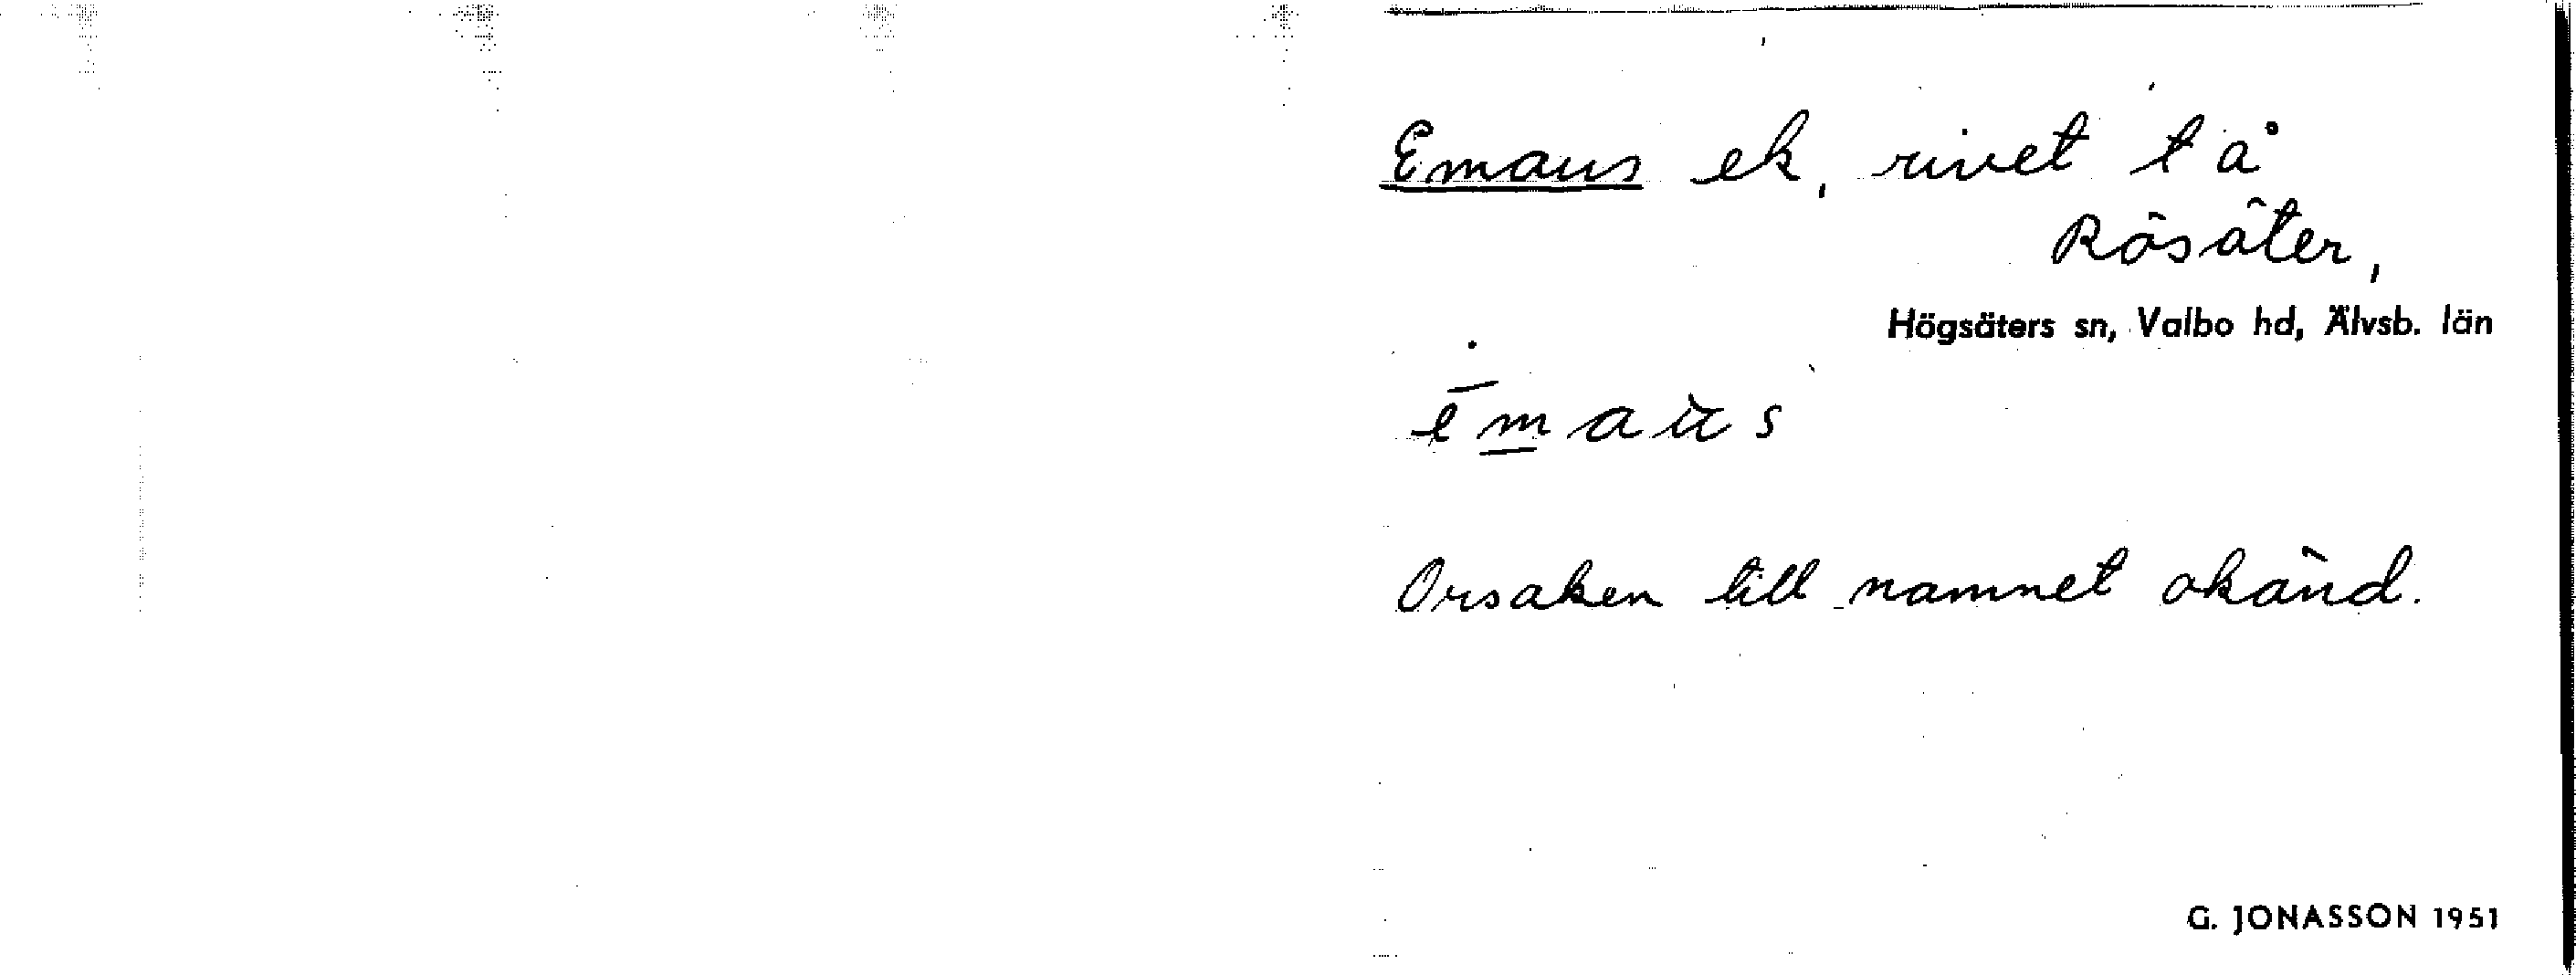 Emaus ek, rivet tå
Rösäter,
Högsäters sn, Valbo hd, Älvsb. län
Orsaken till namnet okänd.
G. JONASSON 1951